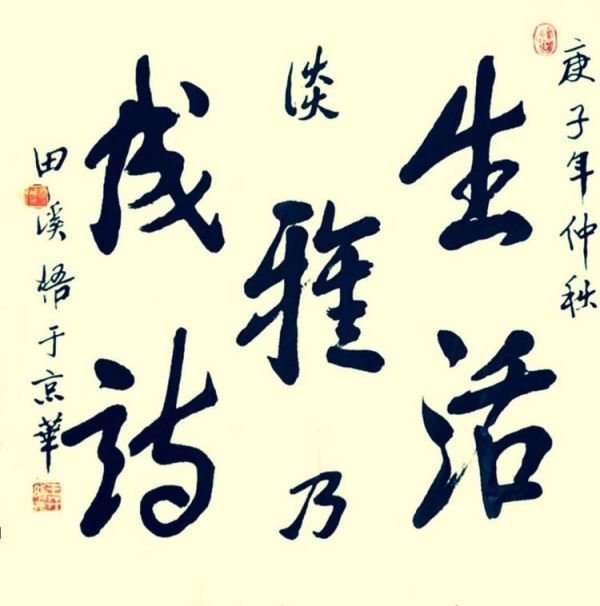 庚子年仲秋
生活
淡雅乃
成诗
田溪悟于京华